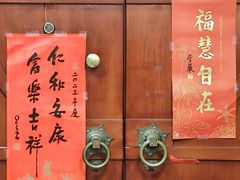 二〇二三年度
仁和安康
富樂吉祥
福慧自在